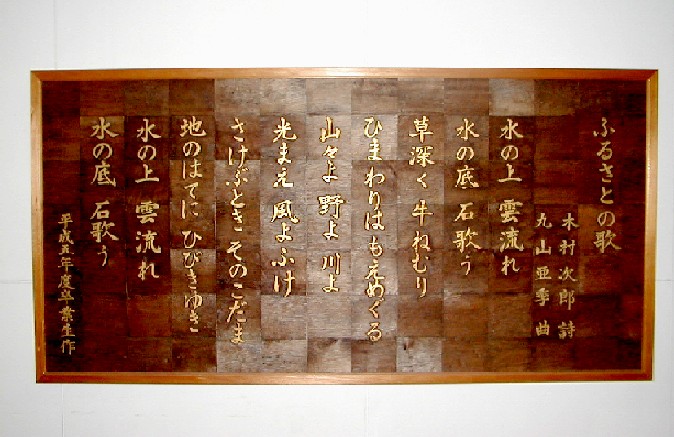 ふるさとの歌
木村次郎 詩
丸山亜季 曲
水の上 雲流れ
水の底 石歌う
草深く 牛ねむり
ひまわりはもえめぐる
山々よ 野よ 川よ
光まえ 風よふけ
さけぶとき そのこだま
地のはてに ひびきゆき
水の上 雲流れ
水の底 石歌う
平成五年度卒業生作